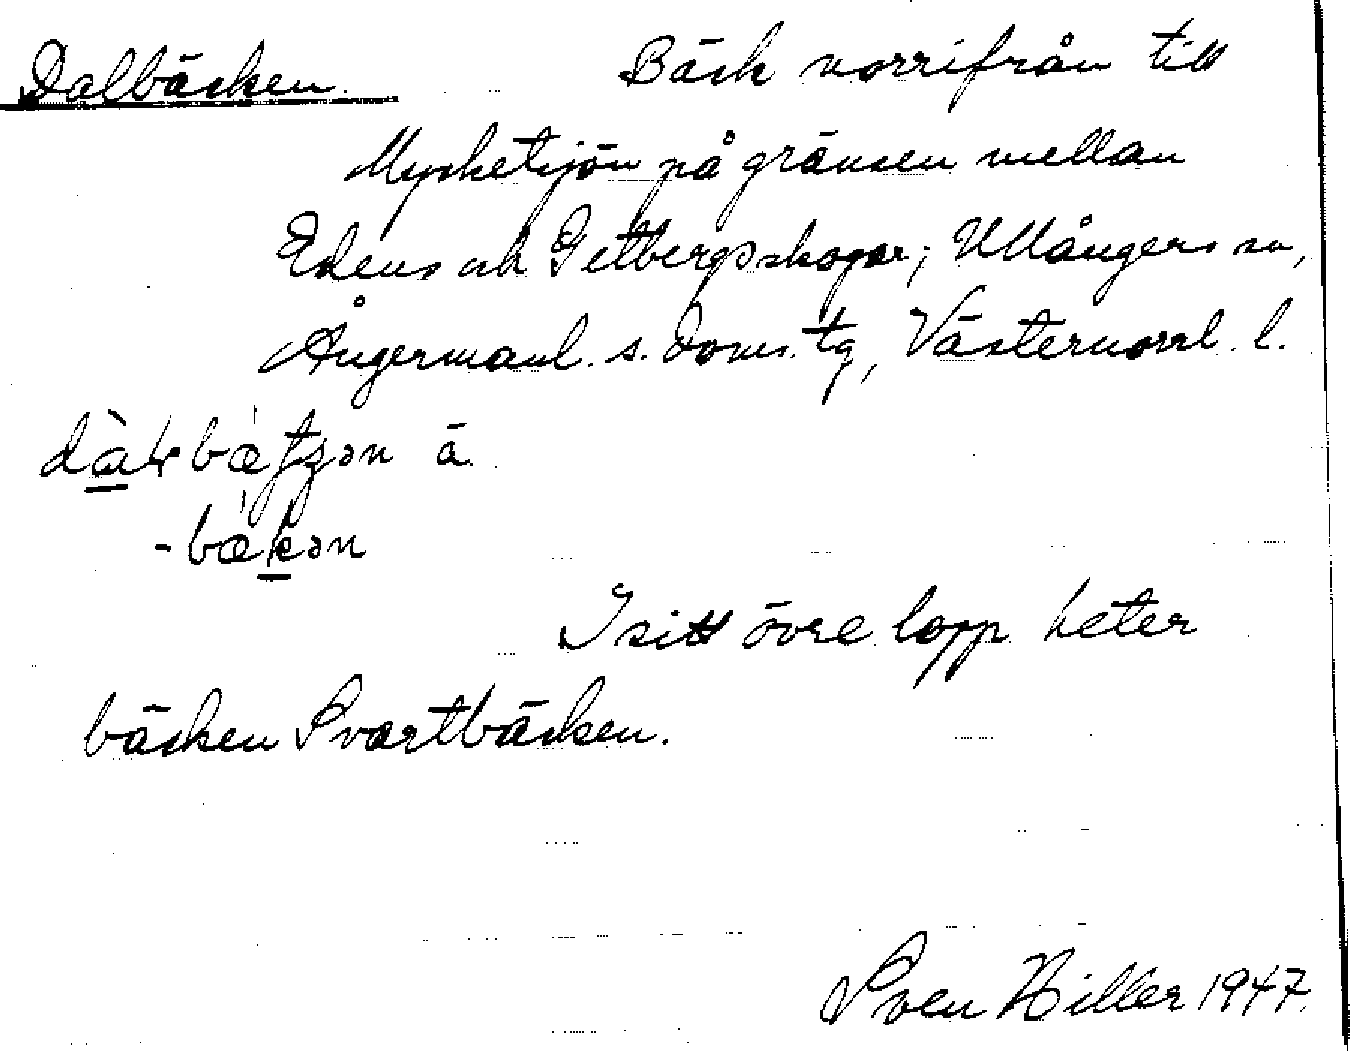 Dalbäcken. Bäck norrifrån till
Mycketsjön på gränsen mellan
Edens och Getbergsskogar; Ullångers sn,
Ångermanl. s. doms. tg, Västernorrl. l.
bäcken Svartbäcken.
I sitt övre lopp heter
Sven Hiller 1947.